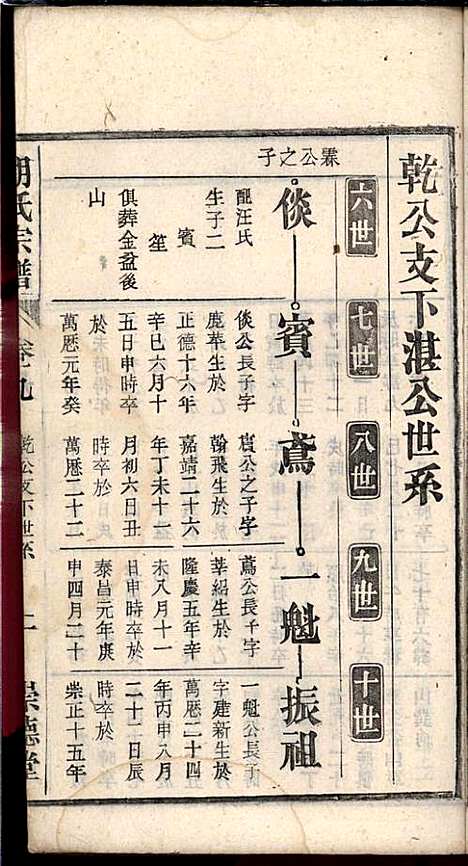 乾公支下湛公世系
六世
七世
八世
九世
十世
霖公之子
倓
賓
鳶
一魁
振祖
配汪氏
生子二
賓
笙
俱葬金益後
山
倓公長子字
鹿苹生於
正德十六年
辛巳六月十
五日申時卒
於
萬厯元年癸
賔公之子字
翰飛生於
嘉靖二十六
年丁未十一
月初六日丑
時卒於
萬厯二十二
鳶公長子字
莘紹生於
隆慶五年辛
未八月十一
日申時卒於
泰昌元年庚
申四月二十
一魁公長子
字建新生於
萬厯二十四
年丙申八月
二十二日辰
時卒於
崇正十五年
胡氏宗譜
卷九
乾公支下世系
二
崇德堂